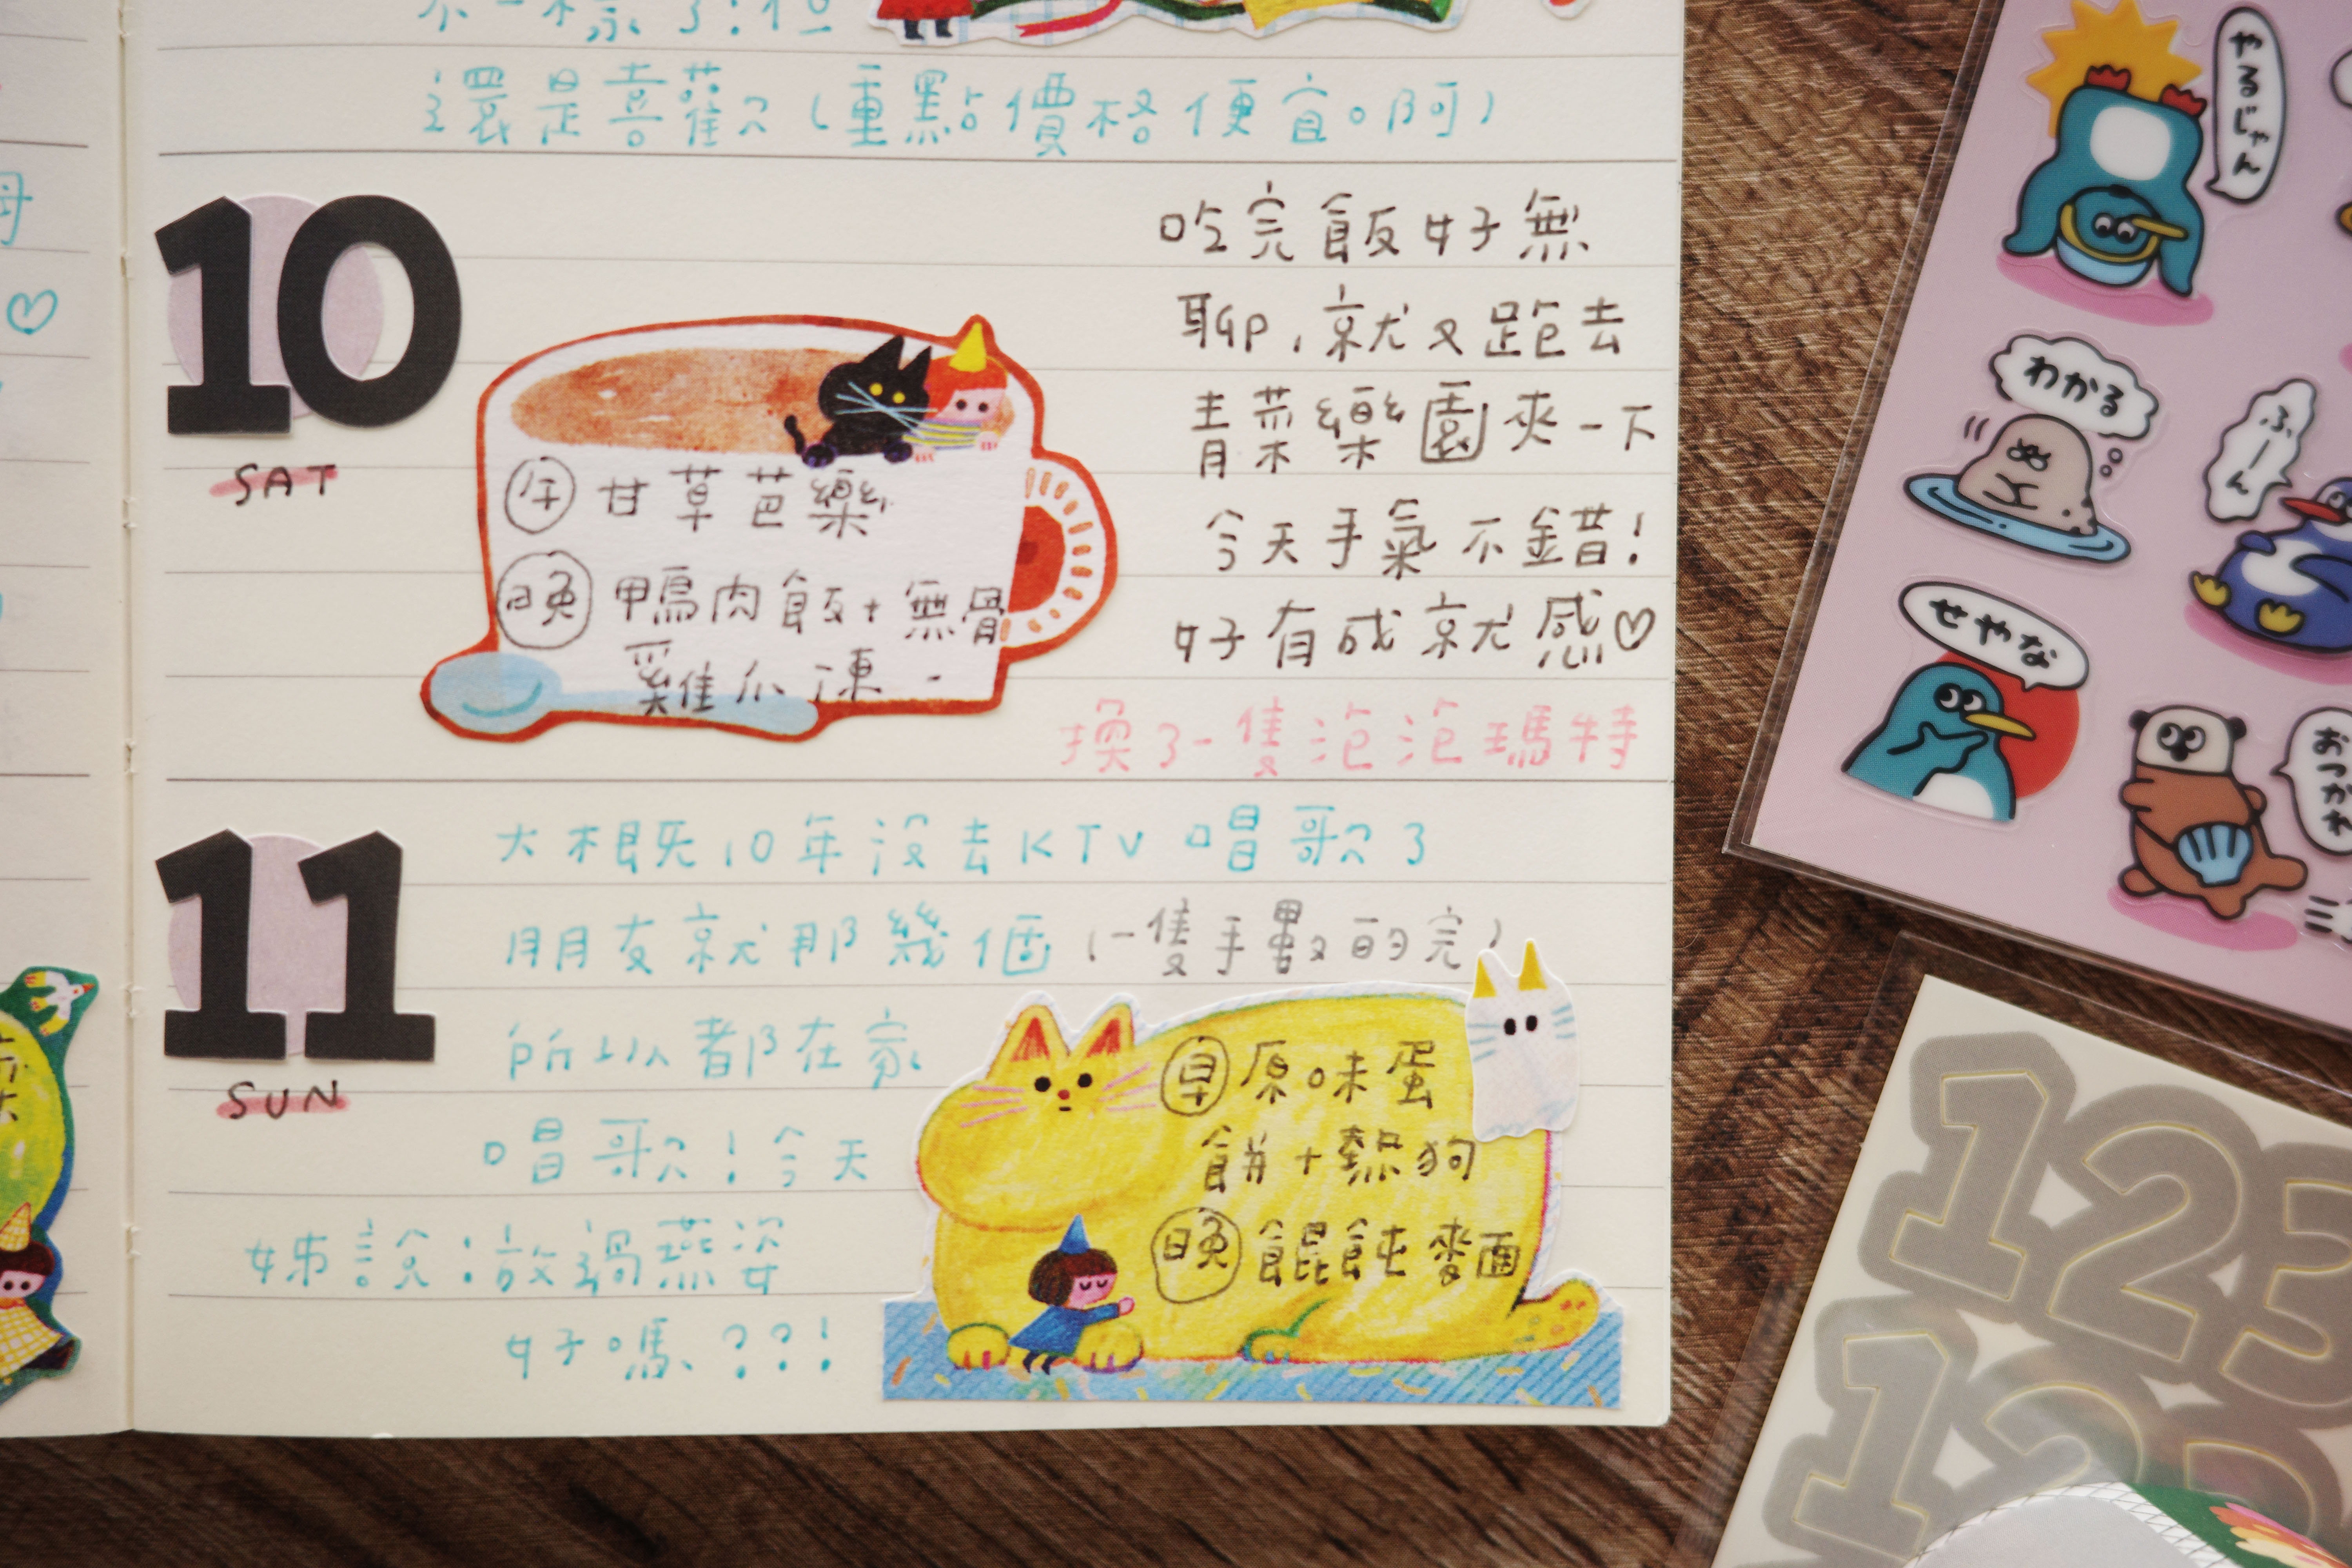 不一樣了!但
還是喜歡(重點價格便宜啊)
10
SAT
午 甘草芭樂
晚 鴨肉飯+無骨
雞爪凍.
吃完飯好無
聊,就又跑去
青菜樂園夾一下
今天手氣不錯!
好有成就感♡
換了一隻泡泡瑪特
11
SUN
大概10年没去KTV唱歌了
朋友就那幾個(一隻手數的完)
所以都在家
唱歌!今天
姊說:放過燕姿
好嗎??!
早 原味蛋
餅+熱狗
晚 餛飩麥面
母
♡
やるじゃん
わかる
ふーん
せやな
おつかれ
123
12